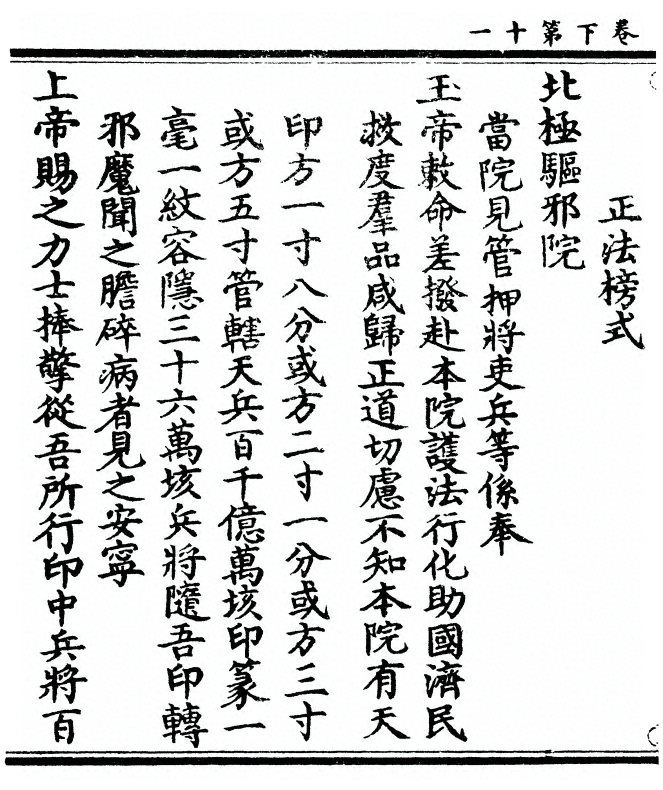 卷下第十一
正法榜式
北極驅邪院
當院見管押將吏兵等係奉
玉帝敕命差撥赴本院護法行化助國濟民
救度羣品咸歸正道切慮不知本院有天
印方一寸八分或方二寸一分或方三寸
或方五寸管轄天兵百千億萬垓印篆一
毫一紋容隱三十六萬垓兵將隨吾印轉
邪魔聞之膽碎病者見之安寧
上帝賜之力士捧擎從吾所行印中兵將百